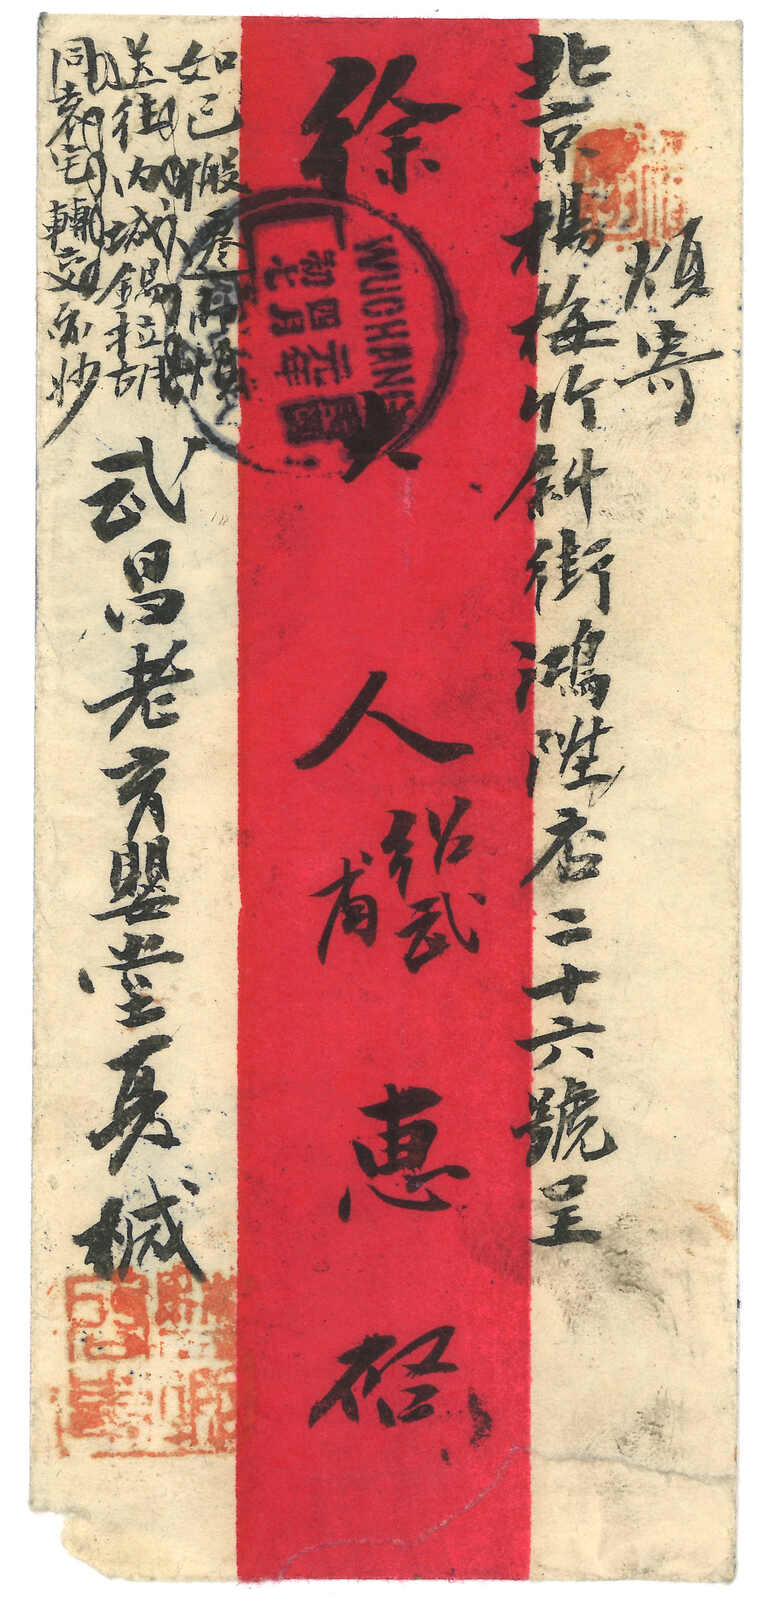 煩寄
北京楊梅竹斜街鴻陞店二十六號呈
徐大人紹武甫惠啓
武昌老育嬰堂夏械
如已搬遷
送街內城錫拉胡
同袁宅轉交為妙
WUCHANG
國元年
四月
初七